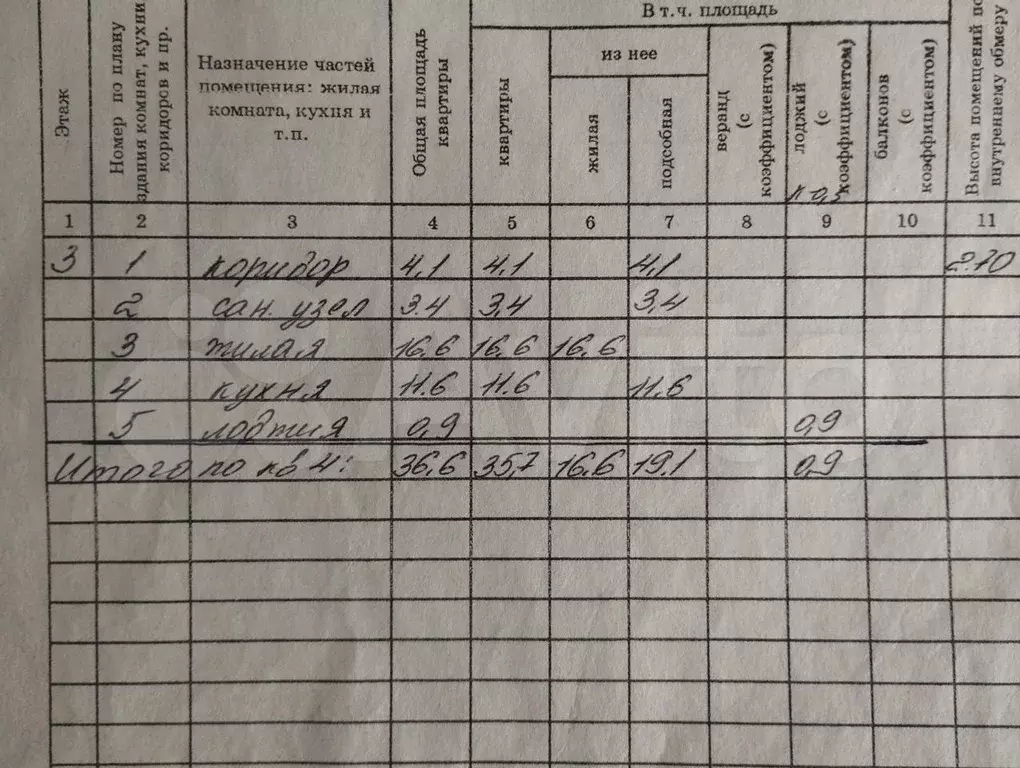 В т.ч. площадь
из нее
Этаж
Номер по плану здания комнат, кухни коридоров и пр.
Назначение частей
помещения: жилая
комната, кухня и
т.п.
Общая площадь квартиры
квартиры
жилая
подсобная
веранд (с коэффициентом)
лоджий (с коэффициентом)
к 0,5
балконов (с коэффициентом)
Высота помещений по внутреннему обмеру
1 2 3 4 5 6 7 8 9 10 11
3 1 коридор 4,1 4,1 4,1 2.70
2 сан. узел 3.4 3,4 3,4
3 жилая 16.6 16.6 16.6
4 кухня 11.6 11.6 11.6
5 лоджия 0,9 0,9
Итого по кв 4: 36,6 35,7 16.6 19.1 0,9